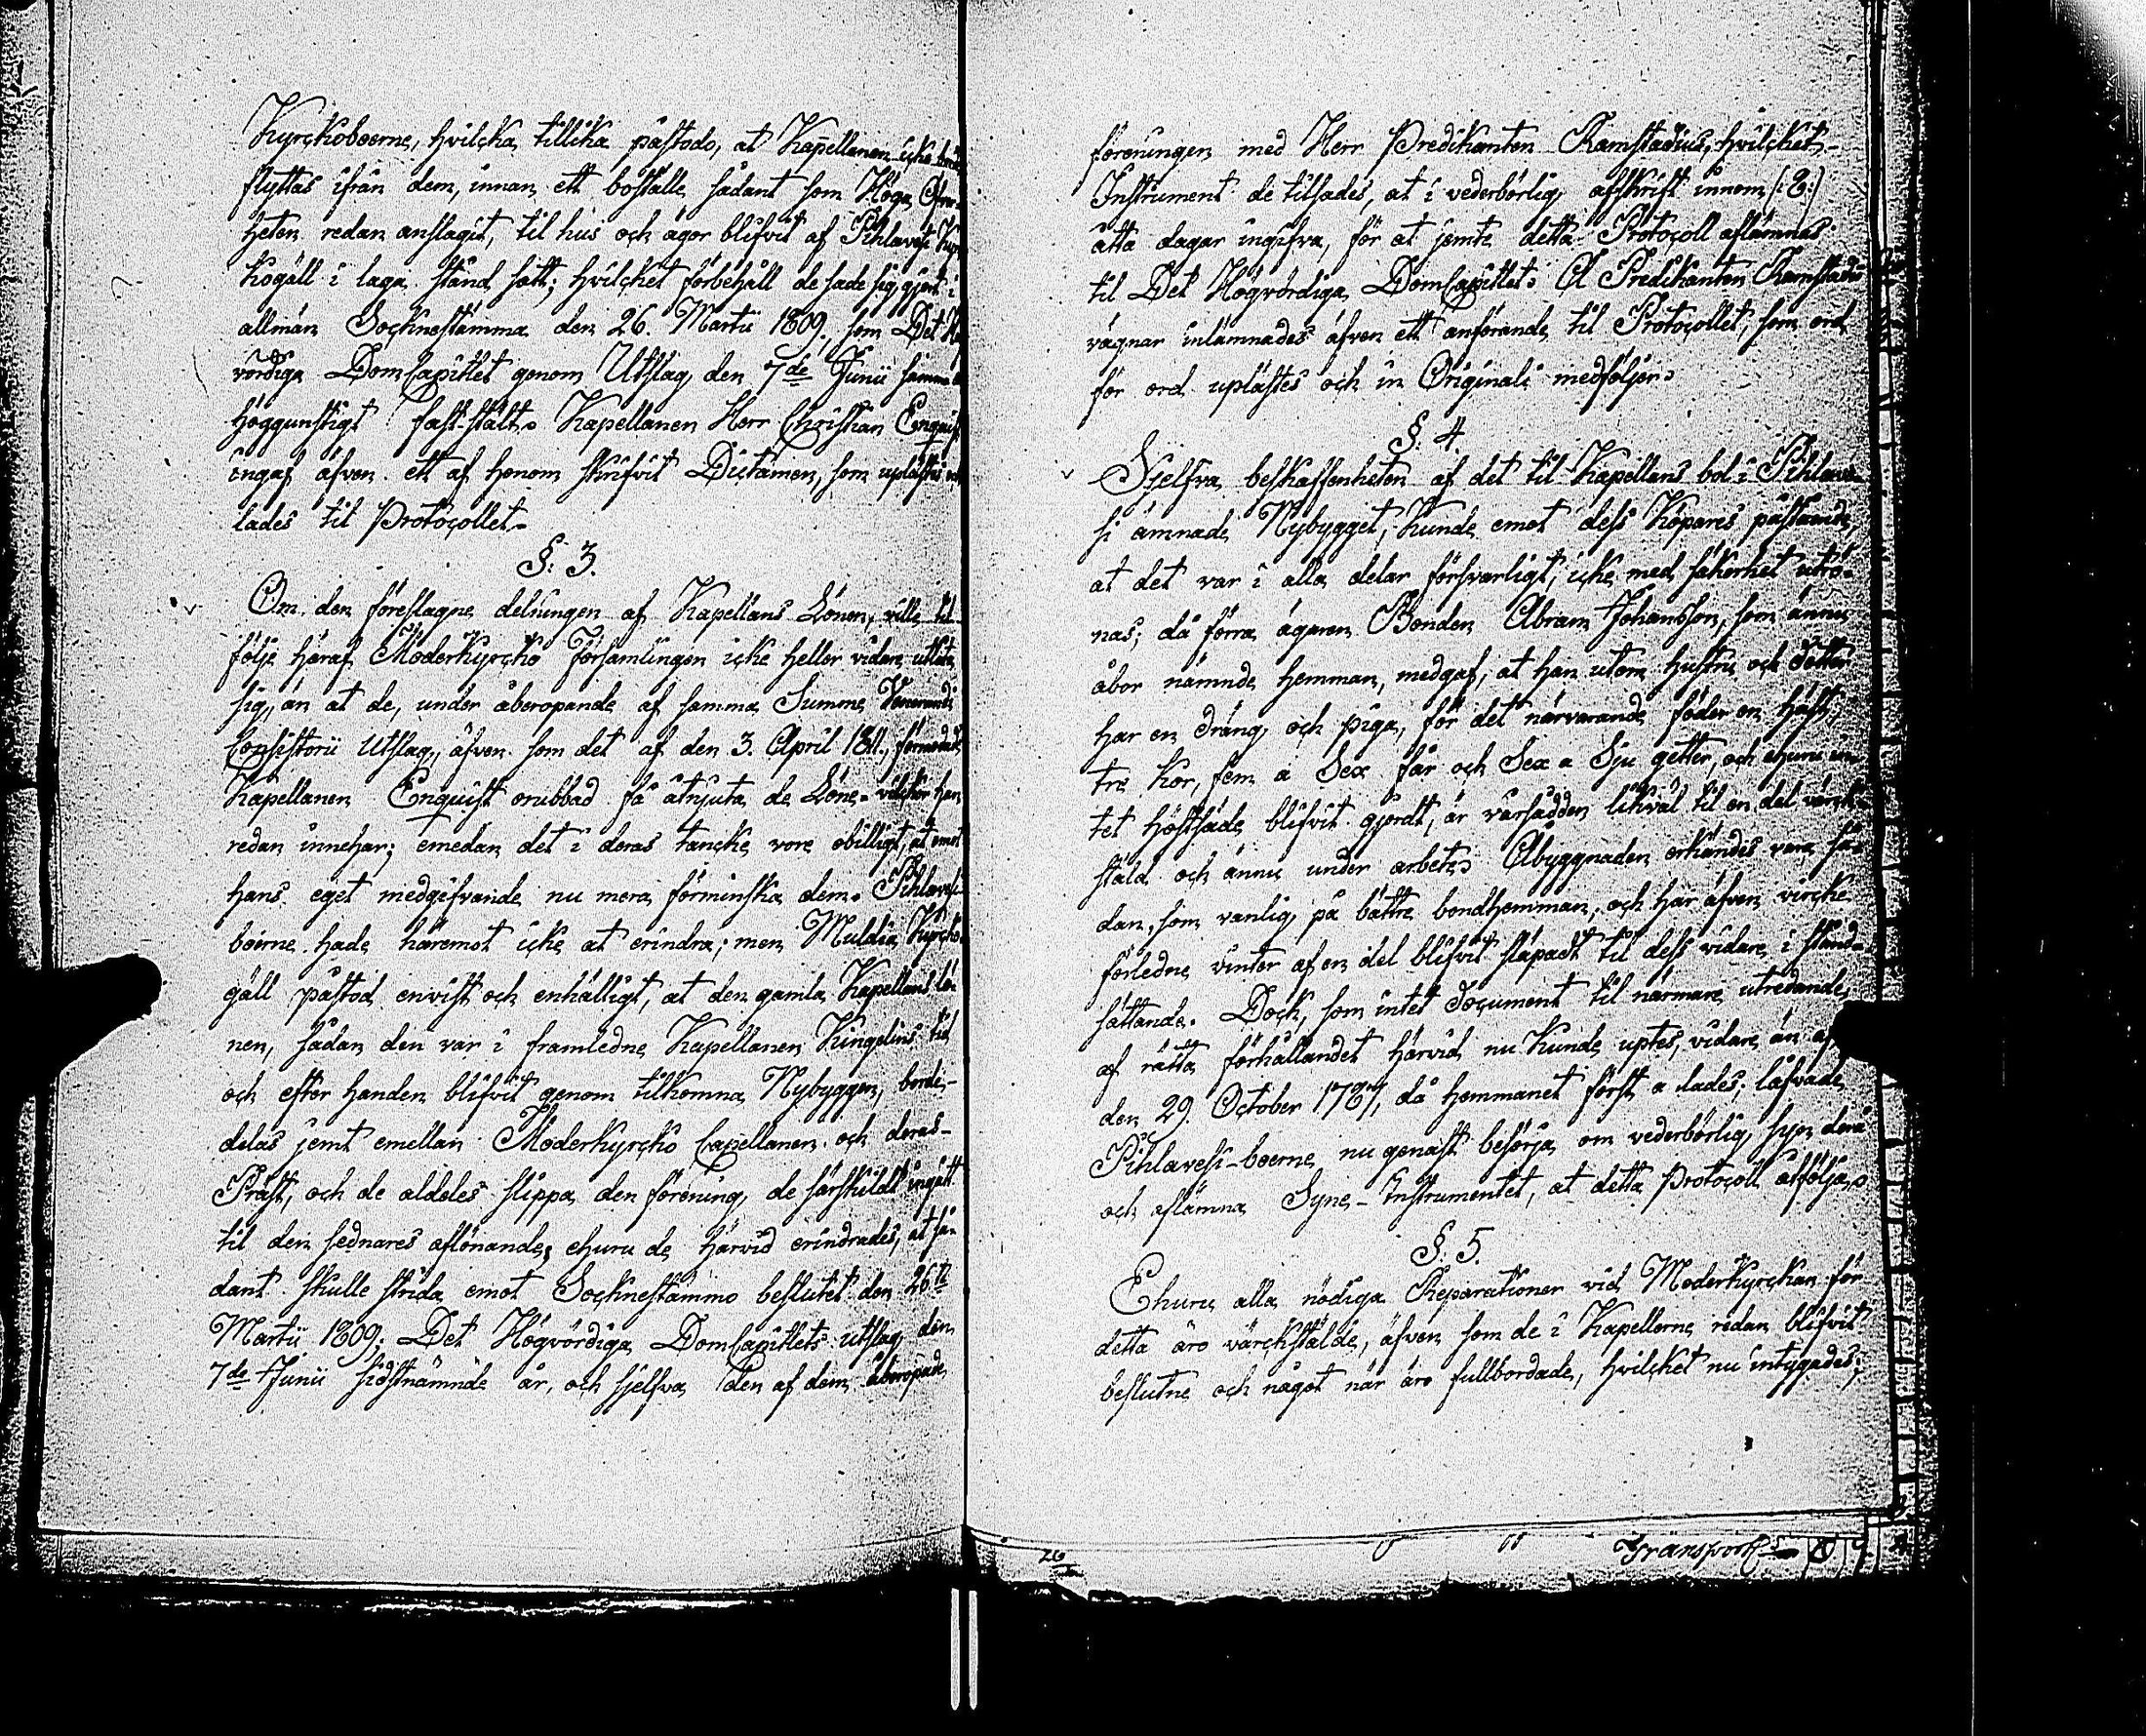 Kyrckoboerne, hvilcka tillika påstodo, at Kapellanen icke
flyttas ifrån dem, innan ett boställe sådant som Höga Öfver-
heten redan anslagit, til hus och ägor blifvit af Pihlavesi Kyr-
kogäll i laga stånd satt; hvilcket förbehåll de sade sig gjort i
allmän Socknestämma den 26. Martii 1809, som Det Hög-
vördiga DomCapitlet genom Utslag den 7de Junii samma
höggunstigt fast-stält. Kapellanen Herr Christian Enquist
ingaf äfven ett af honom skrifvit Dictamen, som uplästes
lades til Protocollet.
§. 3.
Om den föreslagne delningen af Kapellans Lönen, ville til
följe häraf Moderkyrcko Församlingen icke heller vidare utlåta
sig, än at de, under åberopande af samma Summe Venerandi
Consistorii Utslag, äfven som det af den 3. April 1811, förmodade
Kapellanen Enquist orubbad få åtnjuta de Löne-vilckor han
redan innehar; emedan det i deras tancke vore obilligt, at emot
hans eget medgifvande nu mera förminska dem. Pihlavesi
boerne hade häremot icke at erindra; men Muldia Kyrcko-
gäll påstod envist och enhälligt, at den gamla Kapellans Lö-
nen, sådan den var i framledne Kapellanen Kingelins tid
och efter handen blifvit genom tilkomna Nybyggen, borde
delas jemt emellan Moderkyrcko Capellanen och deras
Präst, och de aldeles slippa den förening, de särskildt ingått
til den sednares aflönande, ehuru de härvid erindrades, at så-
dant skulle strida emot Sockenstämmo beslutet den 26te
Martii 1809; Det Högvördiga DomCapitlets utslag den
7de Junii sidstnämnde år, och sjelfva den af dem åberopade
föreningen med Herr Predikanten Ramstadius, hvilcket
Instrument de tilsades, at i vederbörlig afskrift innom (:8:)
åtta dagar ingifva, för at jemte detta Protocoll aflämnas
til Det Högvördiga DomCapitlet. Å Predikanten Ramstadii
vägnar inlämnades äfven ett anförande til Protocollet, som ord
för ord uplästes och in Originali medföljer.
§. 4
Sjelfva beskaffenheten af det til Kapellans bol i Pihlave-
si ämnade Nybygget, kunde emot dess Köpares påstående,
at det var i alla delar försvarligt, icke med säkerhet utrö-
nas; då förra ägaren Bonden Abram Johansson, som ännu
åbor nämnde hemman, medgaf, at han utom hustru och dotter
har en dräng och piga, för det närvarande föder en häst,
tre kor, fem a Sex får och Sex a Sju getter, och ehuru in-
tet höstsäde blifvit gjordt, är vårsädden likväl til en del värck-
stäld och ännu under arbete. Åbyggnaden erkändes vara så-
dan, som vanlig på bättre bondhemman, och har äfven vircke
förledne vinter af en del blifvit släpadt til dess vidare i stånd-
sättande. Dock, som intet document til närmare utredande
af rätta förhållandet härvid nu kunde uptes, vidare än af
den 29. October 1787, då hemmanet först a lades; låfvade
Pihlavesi-boerne nu genast besörja om vederbörlig syn derå
och aflämna Syne-Instrumentet, at detta Protocoll åtfölja.
§. 5.
Ehuru alla nödiga Reparationer vid Moderkyrckan för
detta äro värckstälde, äfven som de i Kapellerne redan blifvit
beslutne och något när äro fullbordade, hvilcket nu intygades;
26
Transport